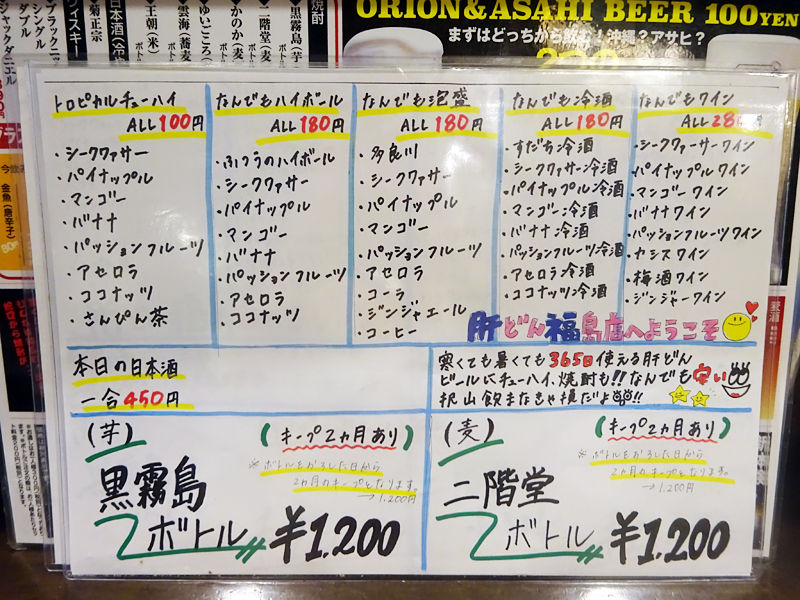 ORION & ASAHI BEER 100YEN
まずはどっちから飲む!沖縄?アサヒ?
トロピカルチューハイ
ALL 100円
・シークワァサー
・パイナップル
・マンゴー
・バナナ
・パッションフルーツ
・アセロラ
・ココナッツ
・さんぴん茶
なんでもハイボール
ALL 180円
・ふつうのハイボール
・シークワァサー
・パイナップル
・マンゴー
・バナナ
・パッションフルーツ
・アセロラ
・ココナッツ
なんでも泡盛
ALL 180円
・多良川
・シークワァサー
・パイナップル
・マンゴー
・パッションフルーツ
・アセロラ
・コーラ
・ジンジャエール
・コーヒー
なんでも冷酒
ALL 180円
・すだち冷酒
・シークワァサー冷酒
・パイナップル冷酒
・マンゴー冷酒
・バナナ冷酒
・パッションフルーツ冷酒
・アセロラ冷酒
・ココナッツ冷酒
なんでもワイン
ALL 280円
・シークワァーサーワイン
・パイナップルワイン
・マンゴーワイン
・バナナワイン
・パッションフルーツワイン
・カシスワイン
・梅酒ワイン
・ジンジャーワイン
肝どん福島店へようこそ
本日の日本酒
一合450円
寒くても暑くても365日使える肝どん
ビールにチューハイ、焼酎も!!なんでも安い
沢山飲まなきゃ損だよ!!
(芋)
(キープ2ヵ月あり)
※ボトルをおろした日から
2ヵ月のキープとなります。
→1,200円
黒霧島
ボトル ¥1,200
(麦)
(キープ2ヵ月あり)
※ボトルをおろした日から
2ヵ月のキープとなります。
→1,200円
二階堂
ボトル ¥1,200